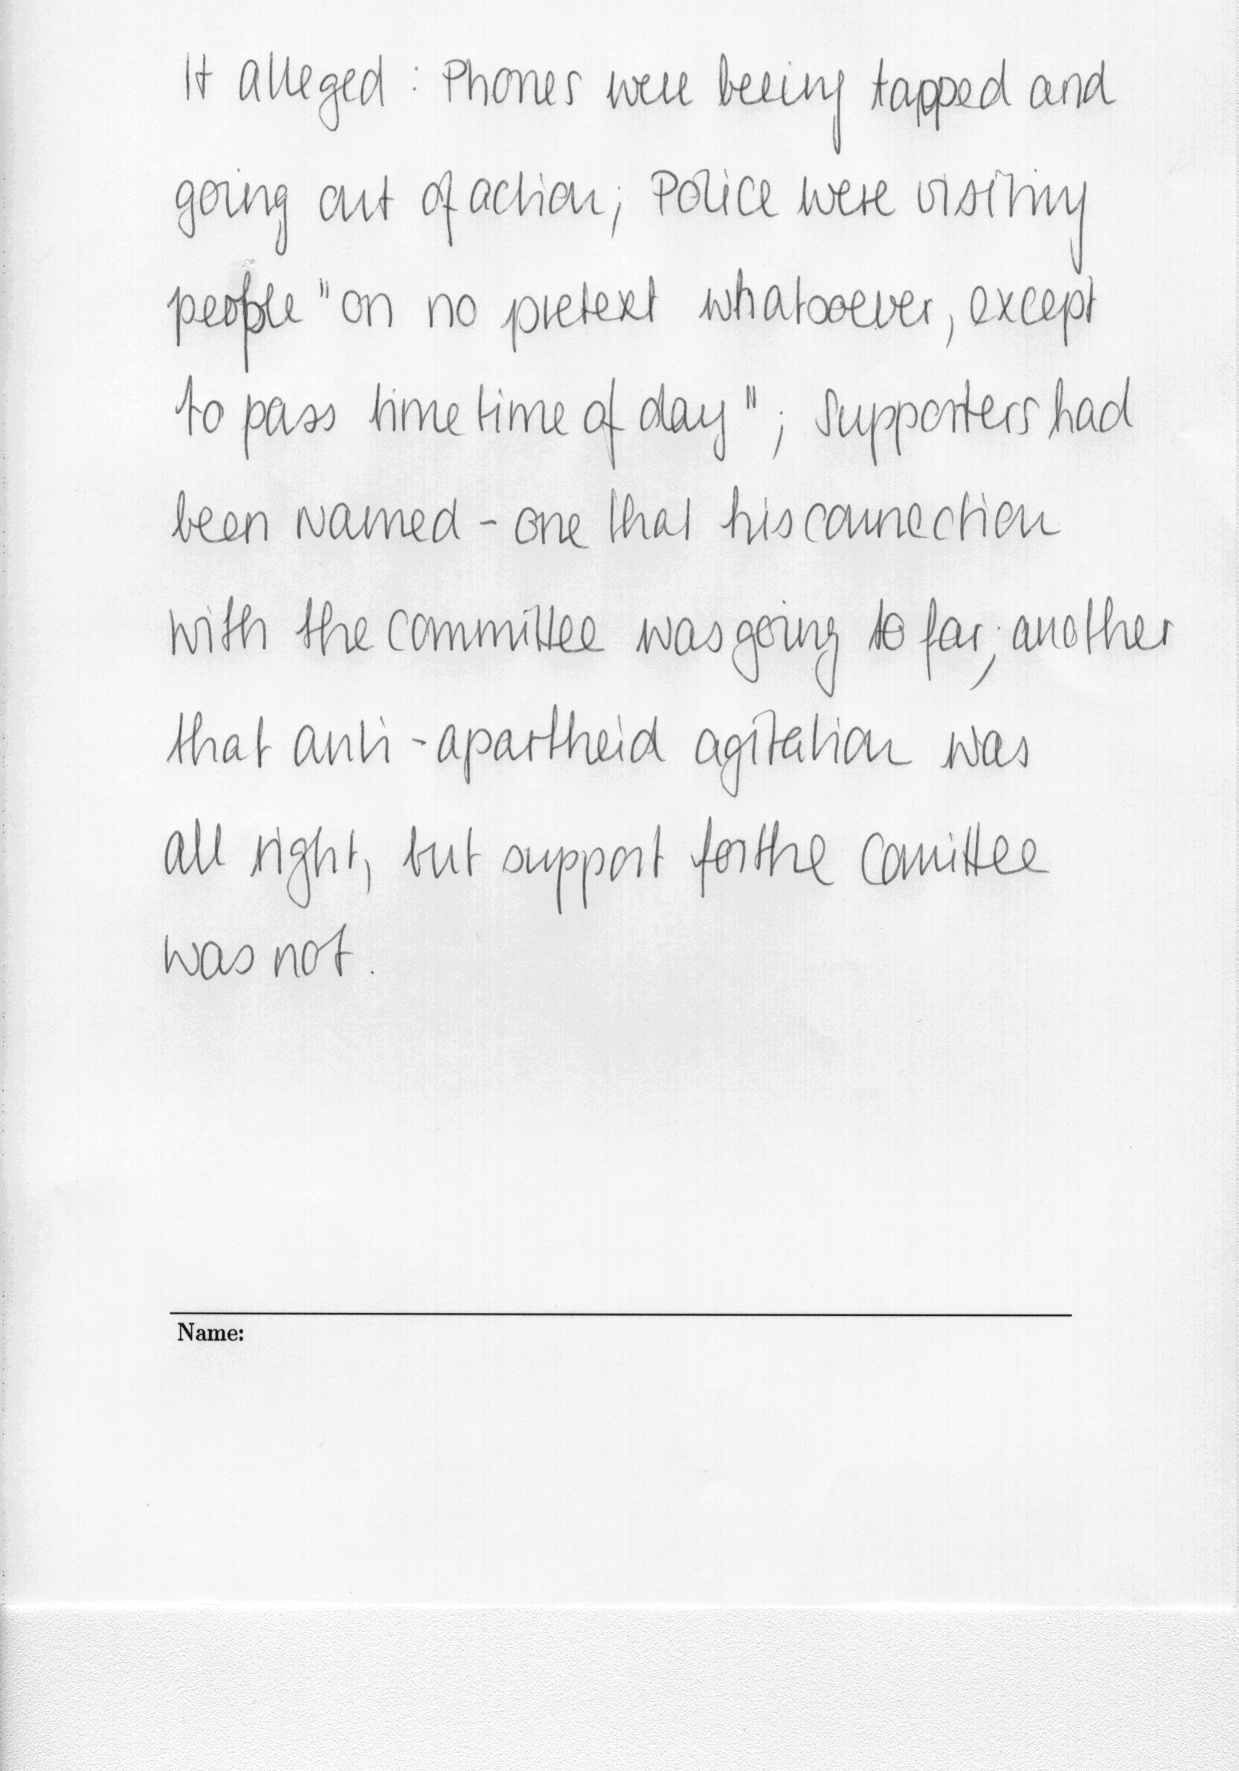 It alleged : Phones were beeing tapped and
going out of action; Police were visiting
people "on no pretext whatsoever, except
to pass time time of day"; supporters had
been named - one that his connection
with the committee was going to far; another
that anti-apartheid agitation was
all right, but support for the Comittee
was not.
Name: